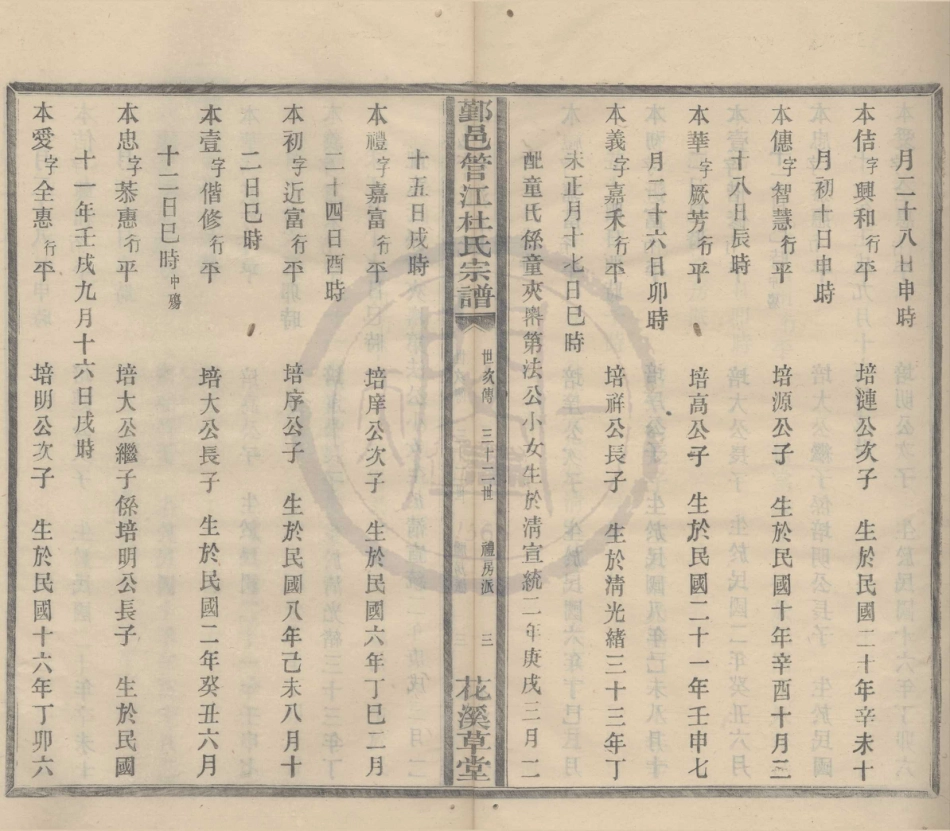 月二十八日申時
本佶字興和行平 培漣公次子 生於民國二十年辛未十
月初十日申時
本僡字智慧行平 培源公子 生於民國十年辛酉十月三
十八日辰時
本華字厥芳行平 培高公子 生於民國二十一年壬申七
月二十六日卯時
本義字嘉禾行平 培祥公長子 生於淸光緒三十三年丁
未正月十七日巳時
配童氏係童夾嶴第法公小女生於淸宣統二年庚戌三月二
鄞邑管江杜氏宗譜 世次傳 三十二世 禮房派 三 花溪草堂
十五日戌時
本禮字嘉富行平 培庠公次子 生於民國六年丁巳二月
二十四日酉時
本初字近富行平 培序公子 生於民國八年己未八月十
二日巳時
本壹字偕修行平 培大公長子 生於民國二年癸丑六月
十二日巳時中殤
本忠字慕惠行平 培大公繼子係培明公長子 生於民國
十一年壬戌九月十六日戌時
本愛字全惠行平 培明公次子 生於民國十六年丁卯六